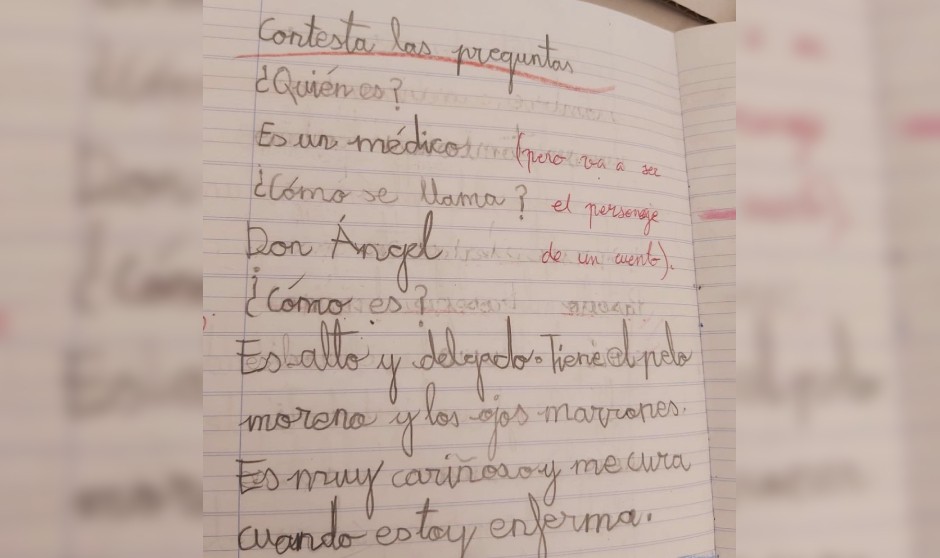 Contesta las preguntas
¿Quién es?
Es un médico. (pero va a ser
¿Cómo se llama? el personaje
Don Ángel de un cuento).
¿Cómo es?
Es alto y delgado. Tiene el pelo
moreno y los ojos marrones.
Es muy cariñoso y me cura
cuando estoy enferma.